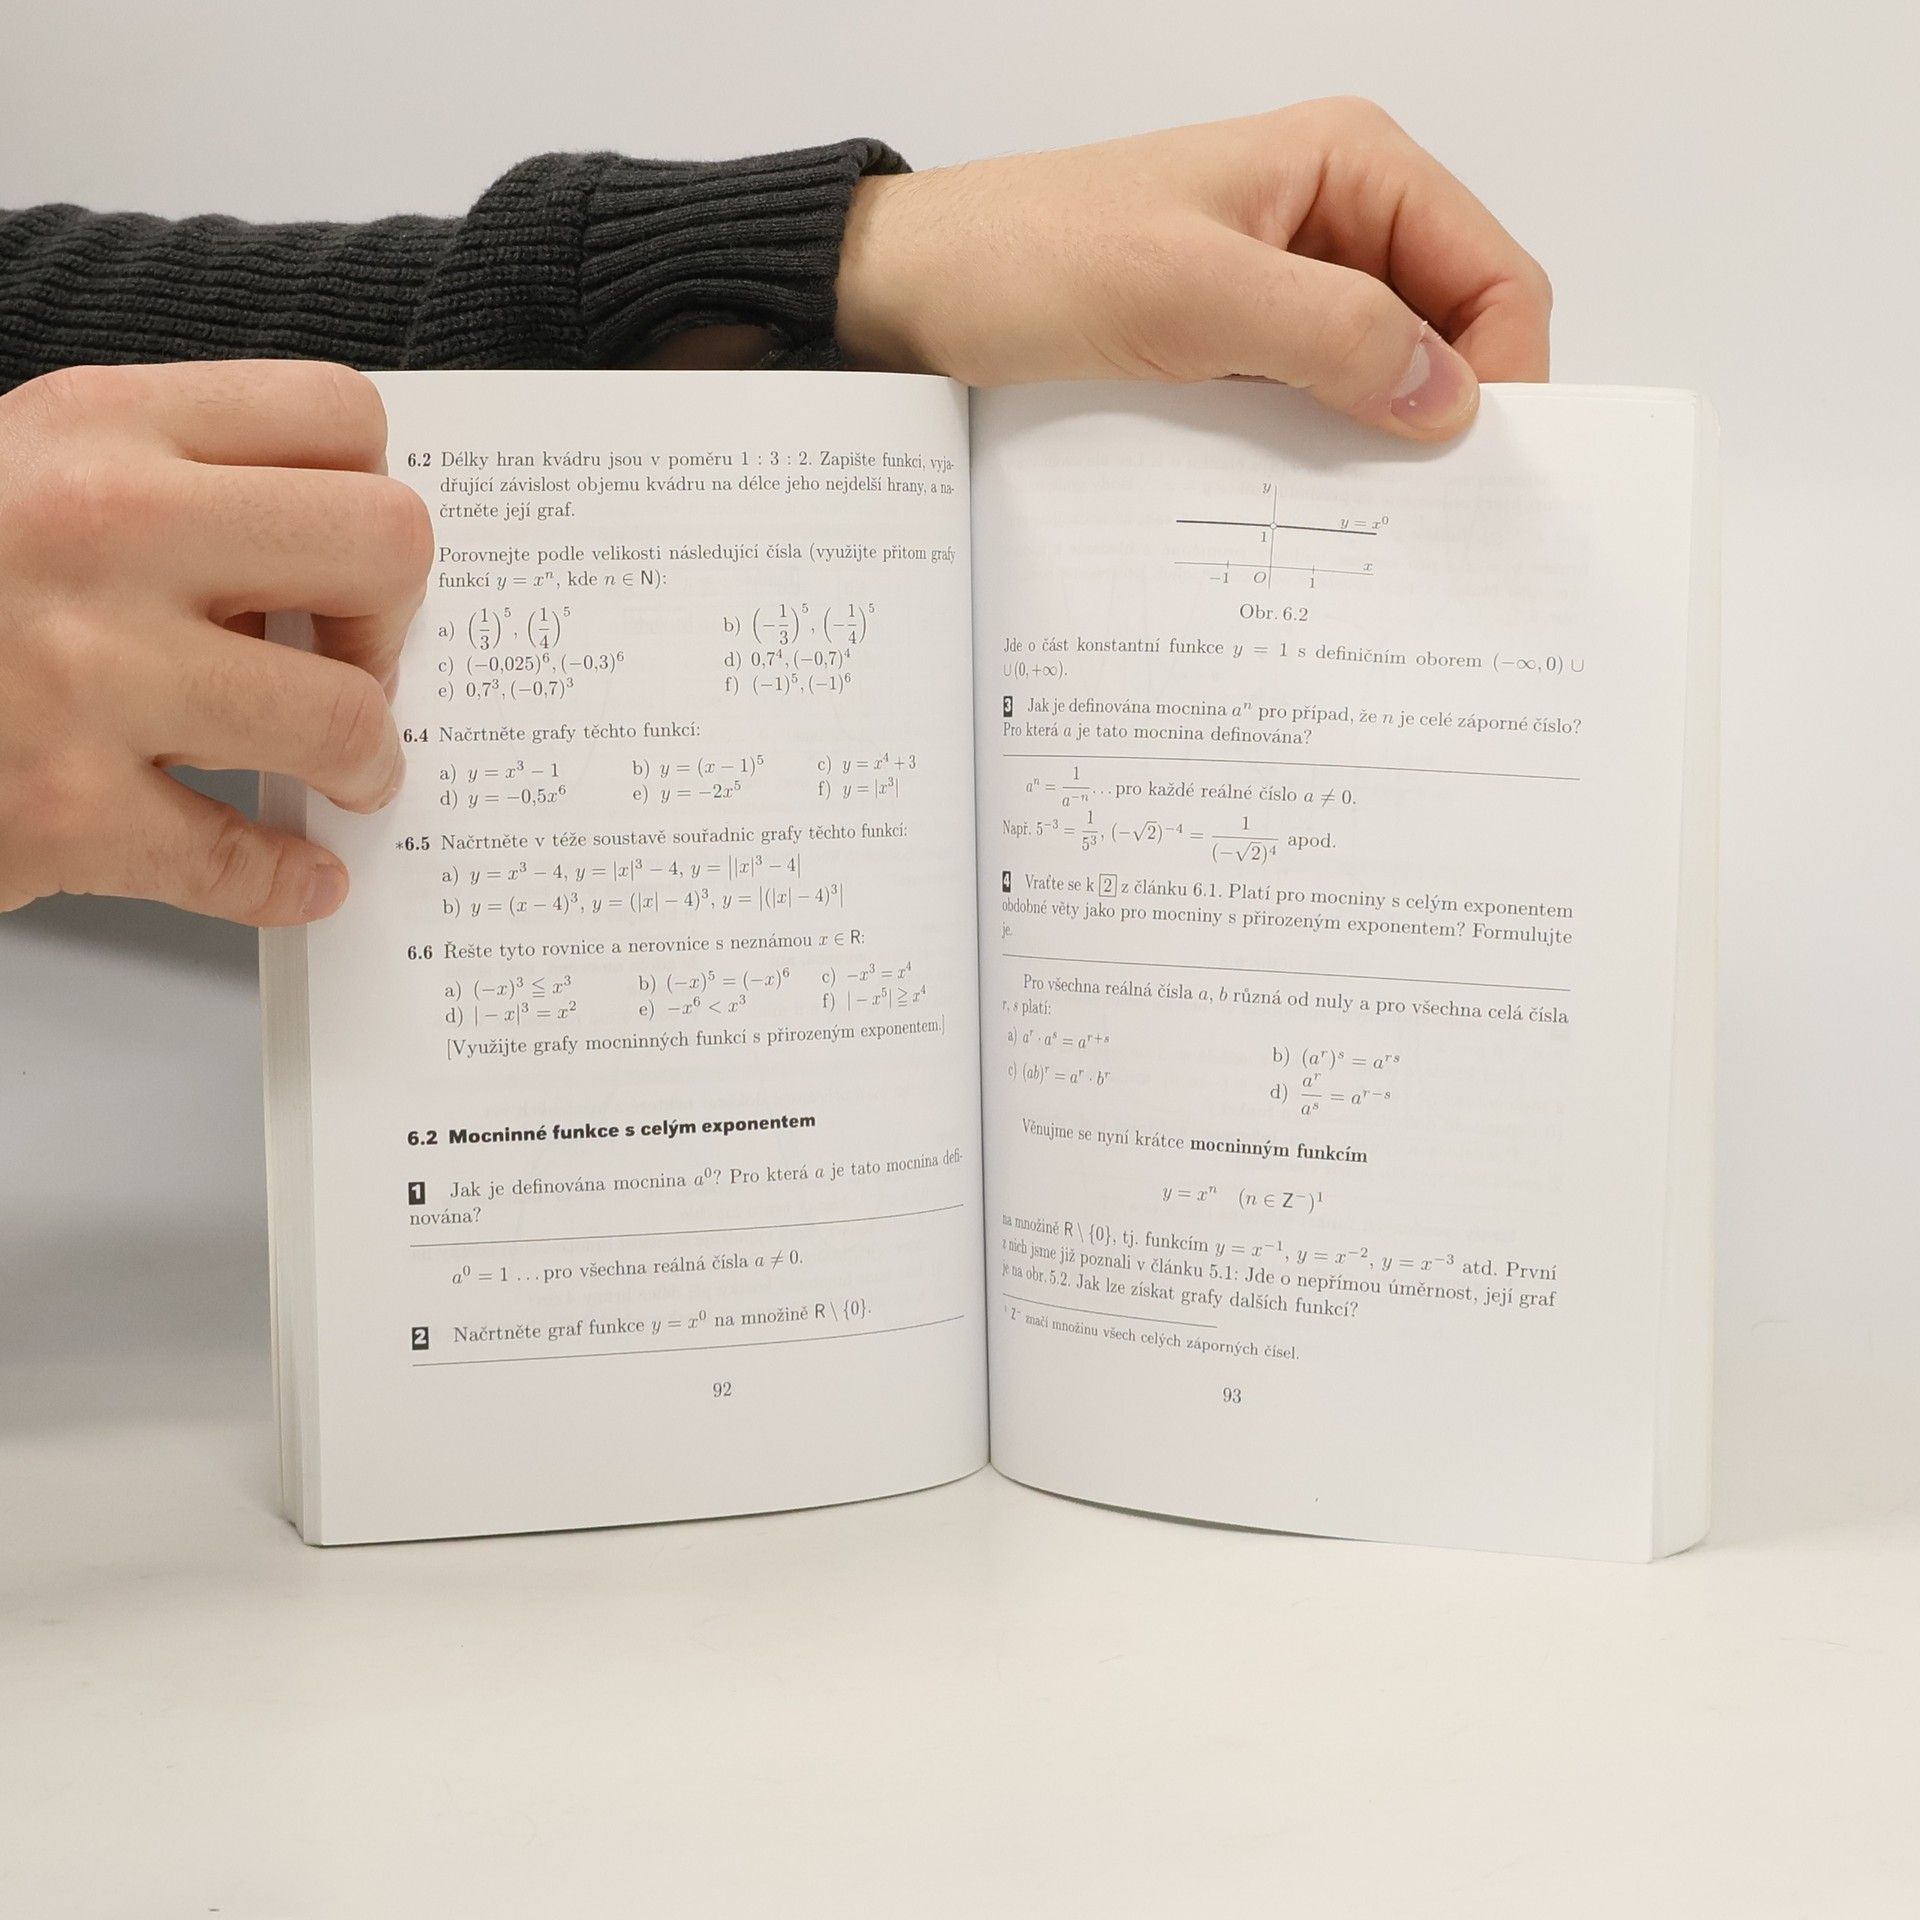 6.2 Délky hran kvádru jsou v poměru 1 : 3 : 2. Zapište funkci, vyja-
dřující závislost objemu kvádru na délce jeho nejdelší hrany, a na-
črtněte její graf.
Porovnejte podle velikosti následující čísla (využijte přitom grafy
funkcí y = xⁿ, kde n ∈ N):
a) (1/3)⁵, (1/4)⁵ b) (−1/3)⁵, (−1/4)⁵
c) (−0,025)⁶, (−0,3)⁶ d) 0,7⁴, (−0,7)⁴
e) 0,7³, (−0,7)³ f) (−1)⁵, (−1)⁶
6.4 Načrtněte grafy těchto funkcí:
a) y = x³ − 1 b) y = (x − 1)⁵ c) y = x⁴ + 3
d) y = −0,5x⁶ e) y = −2x⁵ f) y = |x³|
*6.5 Načrtněte v téže soustavě souřadnic grafy těchto funkcí:
a) y = x³ − 4, y = |x|³ − 4, y = ||x|³ − 4|
b) y = (x − 4)³, y = (|x| − 4)³, y = |(|x| − 4)³|
6.6 Řešte tyto rovnice a nerovnice s neznámou x ∈ R:
a) (−x)³ ≦ x³ b) (−x)⁵ = (−x)⁶ c) −x³ = x⁴
d) |− x|³ = x² e) −x⁶ < x³ f) |− x⁵| ≧ x⁴
[Využijte grafy mocninných funkcí s přirozeným exponentem.]
6.2 Mocninné funkce s celým exponentem
1 Jak je definována mocnina a⁰? Pro která a je tato mocnina defi-
nována?
a⁰ = 1 ... pro všechna reálná čísla a ≠ 0.
2 Načrtněte graf funkce y = x⁰ na množině R \ {0}.
92
y
y = x⁰
1
x
−1 O 1
Obr. 6.2
Jde o část konstantní funkce y = 1 s definičním oborem (−∞, 0) ∪
∪ (0, +∞).
3 Jak je definována mocnina aⁿ pro případ, že n je celé záporné číslo?
Pro která a je tato mocnina definována?
aⁿ = 1/a⁻ⁿ ... pro každé reálné číslo a ≠ 0.
Např. 5⁻³ = 1/5³, (−√2)⁻⁴ = 1/(−√2)⁴ apod.
4 Vraťte se k 2 z článku 6.1. Platí pro mocniny s celým exponentem
obdobné věty jako pro mocniny s přirozeným exponentem? Formulujte
je.
Pro všechna reálná čísla a, b různá od nuly a pro všechna celá čísla
r, s platí:
a) aʳ · aˢ = aʳ⁺ˢ b) (aʳ)ˢ = aʳˢ
c) (ab)ʳ = aʳ · bʳ d) aʳ/aˢ = aʳ⁻ˢ
Věnujme se nyní krátce mocninným funkcím
y = xⁿ (n ∈ Z⁻)¹
na množině R \ {0}, tj. funkcím y = x⁻¹, y = x⁻², y = x⁻³ atd. První
z nich jsme již poznali v článku 5.1: Jde o nepřímou úměrnost, její graf
je na obr. 5.2. Jak lze získat grafy dalších funkcí?
¹ Z⁻ značí množinu všech celých záporných čísel.
93